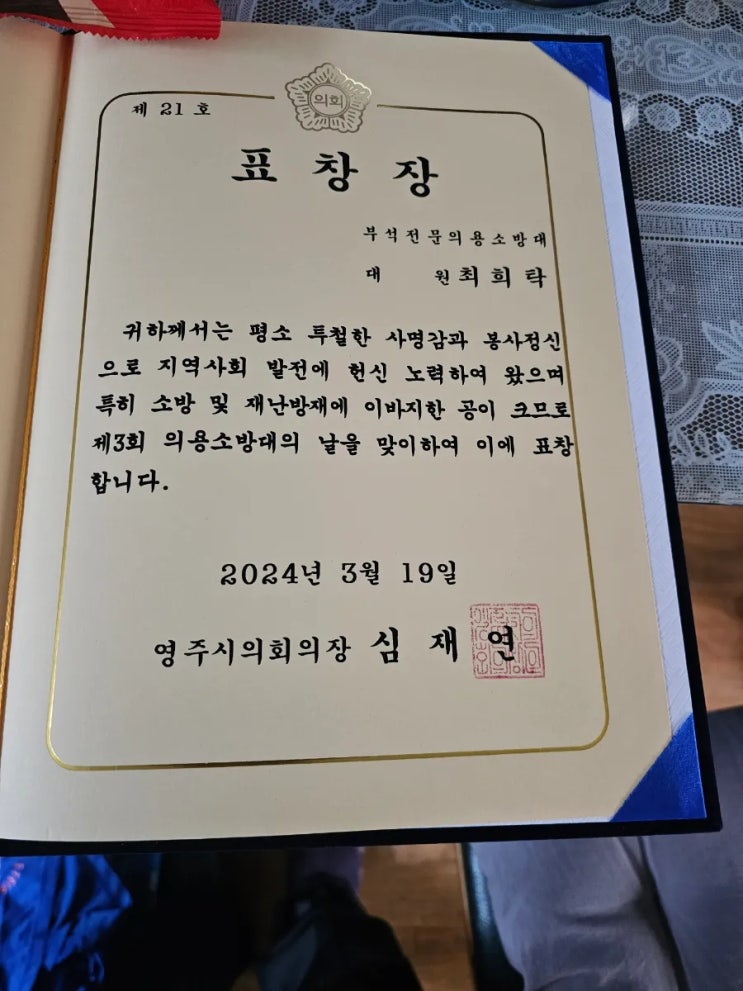 제 21 호
의회
표 창 장
부석전문의용소방대
대 원 최 희 탁
귀하께서는 평소 투철한 사명감과 봉사정신
으로 지역사회 발전에 헌신 노력하여 왔으며
특히 소방 및 재난방재에 이바지한 공이 크므로
제3회 의용소방대의 날을 맞이하여 이에 표창
합니다.
2024년 3월 19일
영주시의회의장 심 재 연